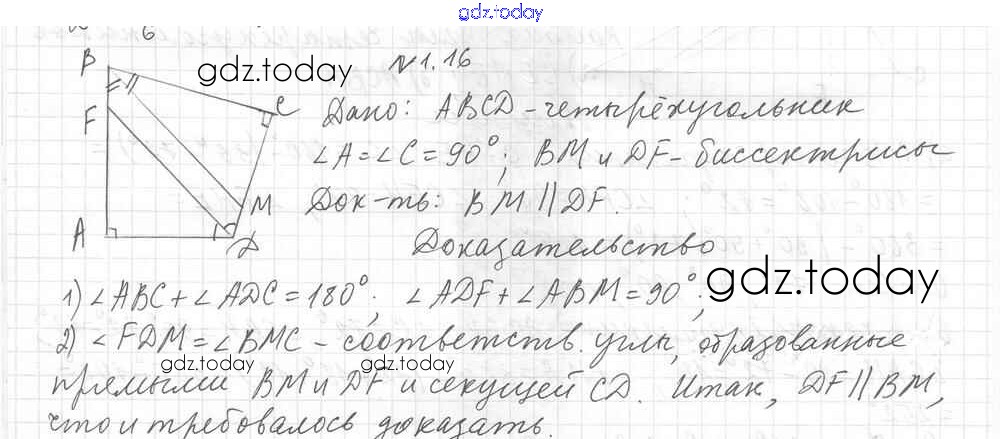 gdz.today
6
N 1.16
B
gdz.today
C
F
Дано: ABCD - четырёхугольник
∠A = ∠C = 90°; BM и DF - биссектрисы
M
Док-ть: BM || DF.
A
D
Доказательство
1) ∠ABC + ∠ADC = 180°; ∠ADF + ∠ABM = 90°;
gdz.today
2) ∠FDM = ∠BMC - соответств. углы, образованные
gdz.today gdz.today
прямыми BM и DF и секущей CD. Итак, DF || BM,
что и требовалось доказать.